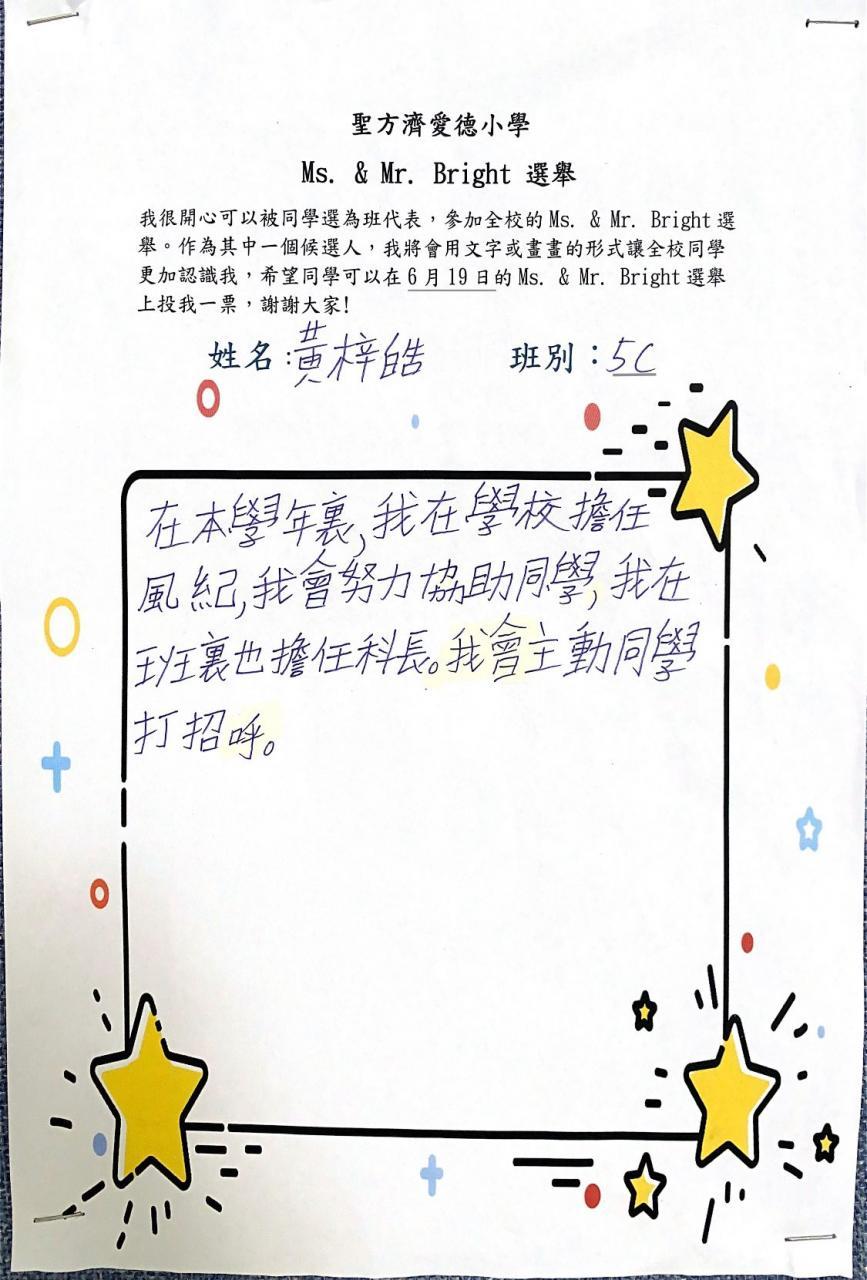 聖方濟愛德小學
Ms. & Mr. Bright 選舉
我很開心可以被同學選為班代表，參加全校的Ms. & Mr. Bright選
舉。作為其中一個候選人，我將會用文字或畫畫的形式讓全校同學
更加認識我，希望同學可以在6月19日的Ms. & Mr. Bright選舉
上投我一票，謝謝大家!
姓名：黃梓皓 班別：5C
在本學年裏,我在學校擔任
風紀,我會努力協助同學,我在
班裏也擔任科長。我會主動同學
打招呼。